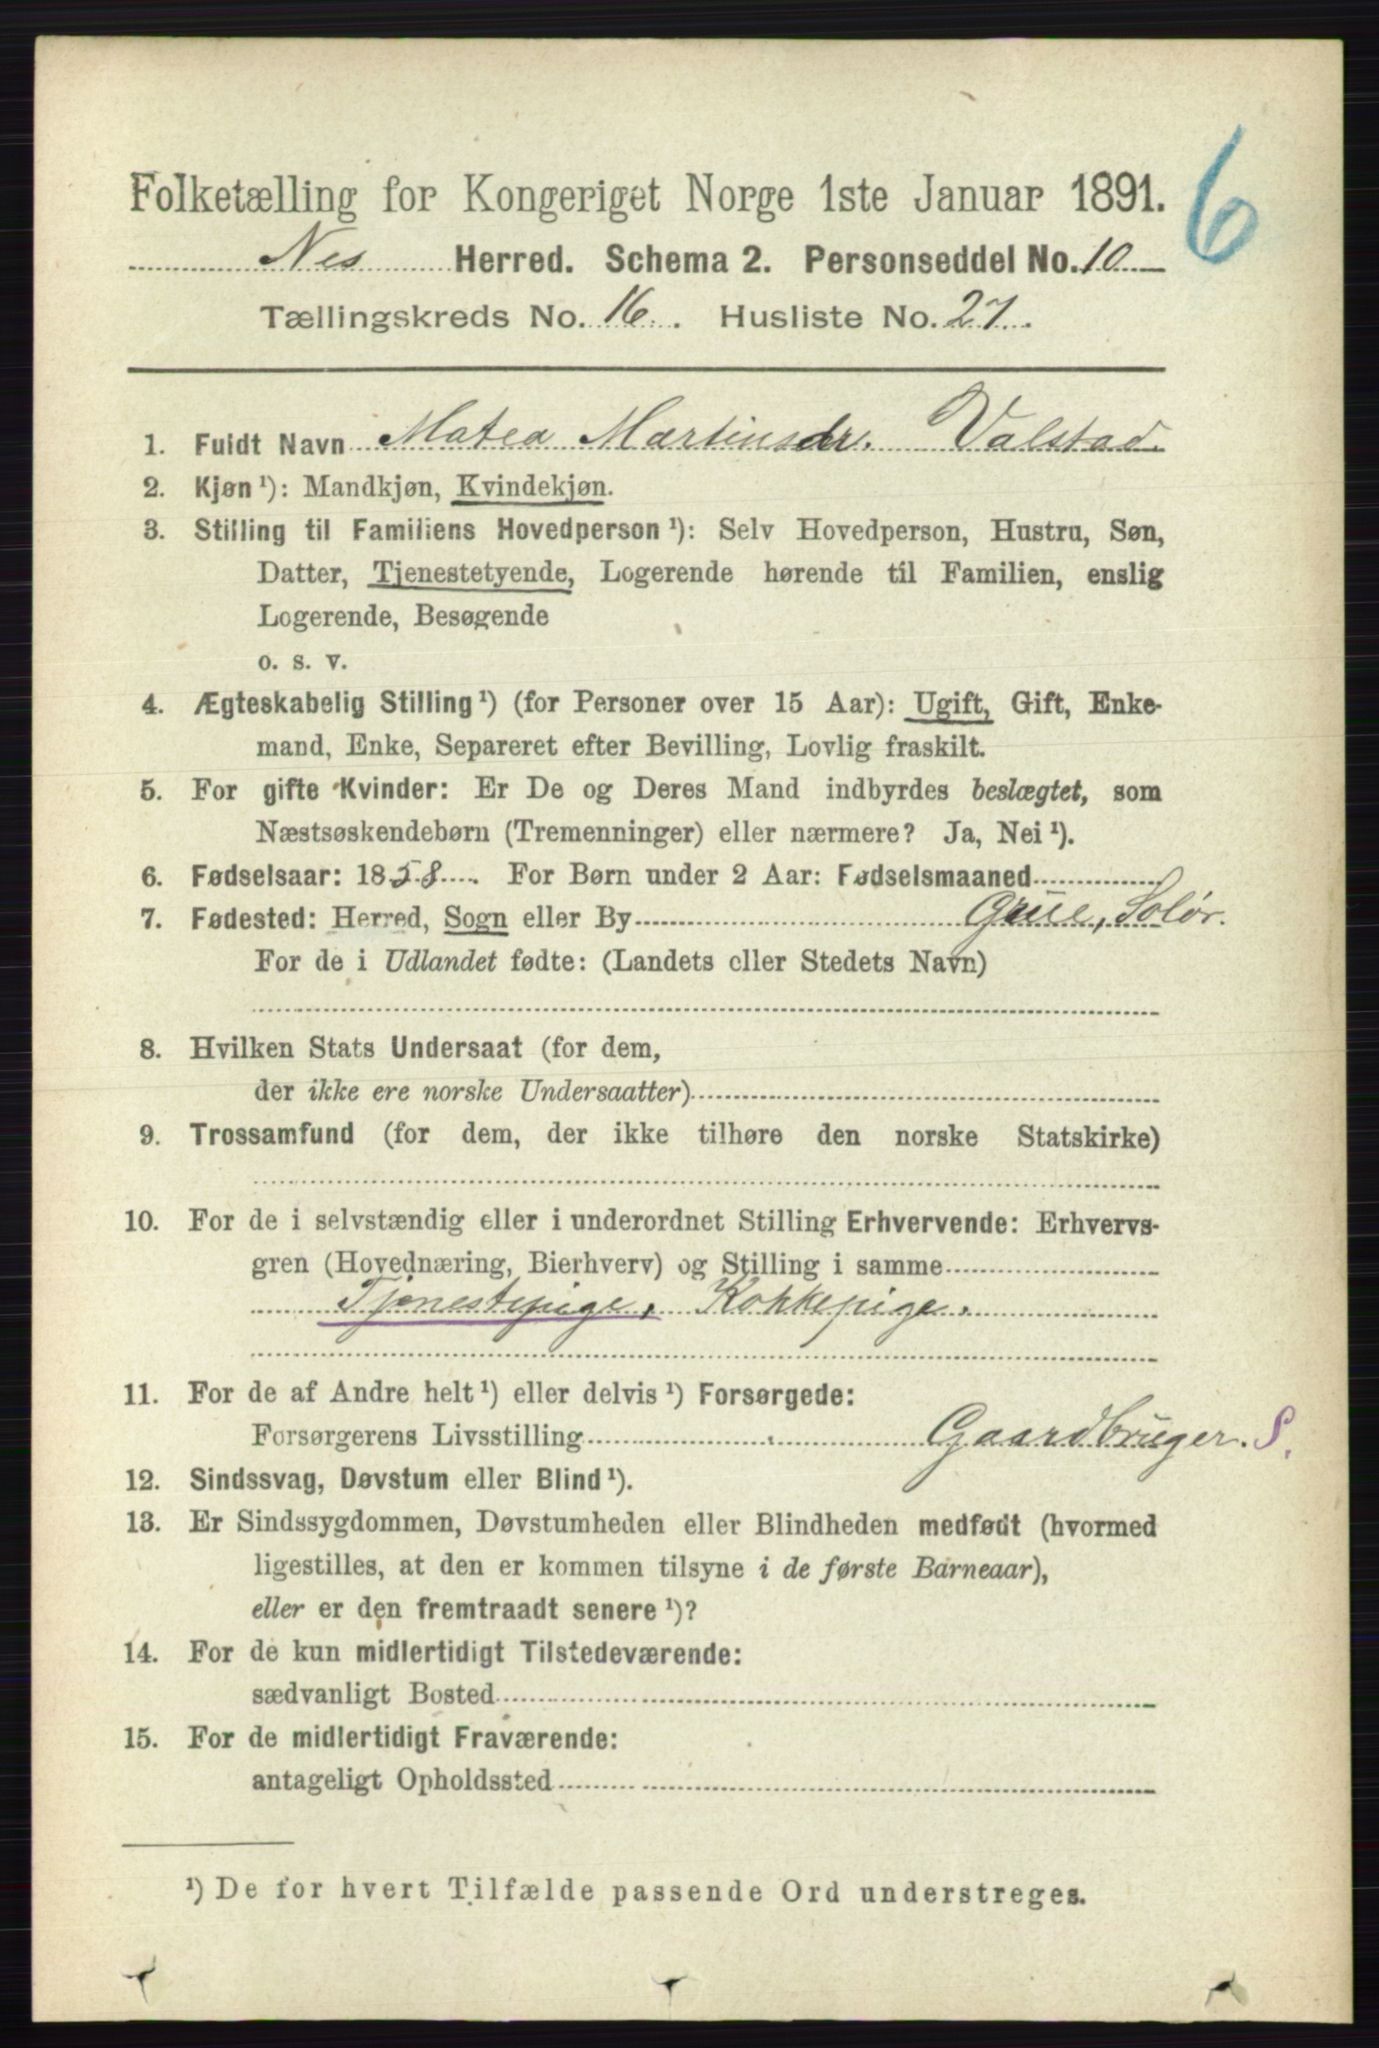 6
Folketælling for Kongeriget Norge 1ste Januar 1891.
Nes Herred. Schema 2. Personseddel No. 10
Tællingskreds No. 16. Husliste No. 27.
1. Fuldt Navn Matea Martinsdr. Valstad.
2. Kjøn ¹): Mandkjøn, Kvindekjøn.
3. Stilling til Familiens Hovedperson ¹): Selv Hovedperson, Hustru, Søn,
Datter, Tjenestetyende, Logerende hørende til Familien, enslig
Logerende, Besøgende
o. s. v.
4. Ægteskabelig Stilling ¹) (for Personer over 15 Aar): Ugift, Gift, Enke-
mand, Enke, Separeret efter Bevilling, Lovlig fraskilt.
5. For gifte Kvinder: Er De og Deres Mand indbyrdes beslægtet, som
Næstsøskendebørn (Tremenninger) eller nærmere? Ja, Nei ¹).
6. Fødselsaar: 1858. For Børn under 2 Aar: Fødselsmaaned
7. Fødested: Herred, Sogn eller By Grue, Solør.
For de i Udlandet fødte: (Landets eller Stedets Navn)
8. Hvilken Stats Undersaat (for dem,
der ikke ere norske Undersaatter)
9. Trossamfund (for dem, der ikke tilhøre den norske Statskirke)
10. For de i selvstændig eller i underordnet Stilling Erhvervende: Erhvervs-
gren (Hovednæring, Bierhverv) og Stilling i samme
Tjenestepige, Kokkepige.
11. For de af Andre helt ¹) eller delvis ¹) Forsørgede:
Forsørgerens Livsstilling Gaardbruger. S.
12. Sindssvag, Døvstum eller Blind ¹).
13. Er Sindssygdommen, Døvstumheden eller Blindheden medfødt (hvormed
ligestilles, at den er kommen tilsyne i de første Barneaar),
eller er den fremtraadt senere ¹)?
14. For de kun midlertidigt Tilstedeværende:
sædvanligt Bosted
15. For de midlertidigt Fraværende:
antageligt Opholdssted
¹) De for hvert Tilfælde passende Ord understreges.